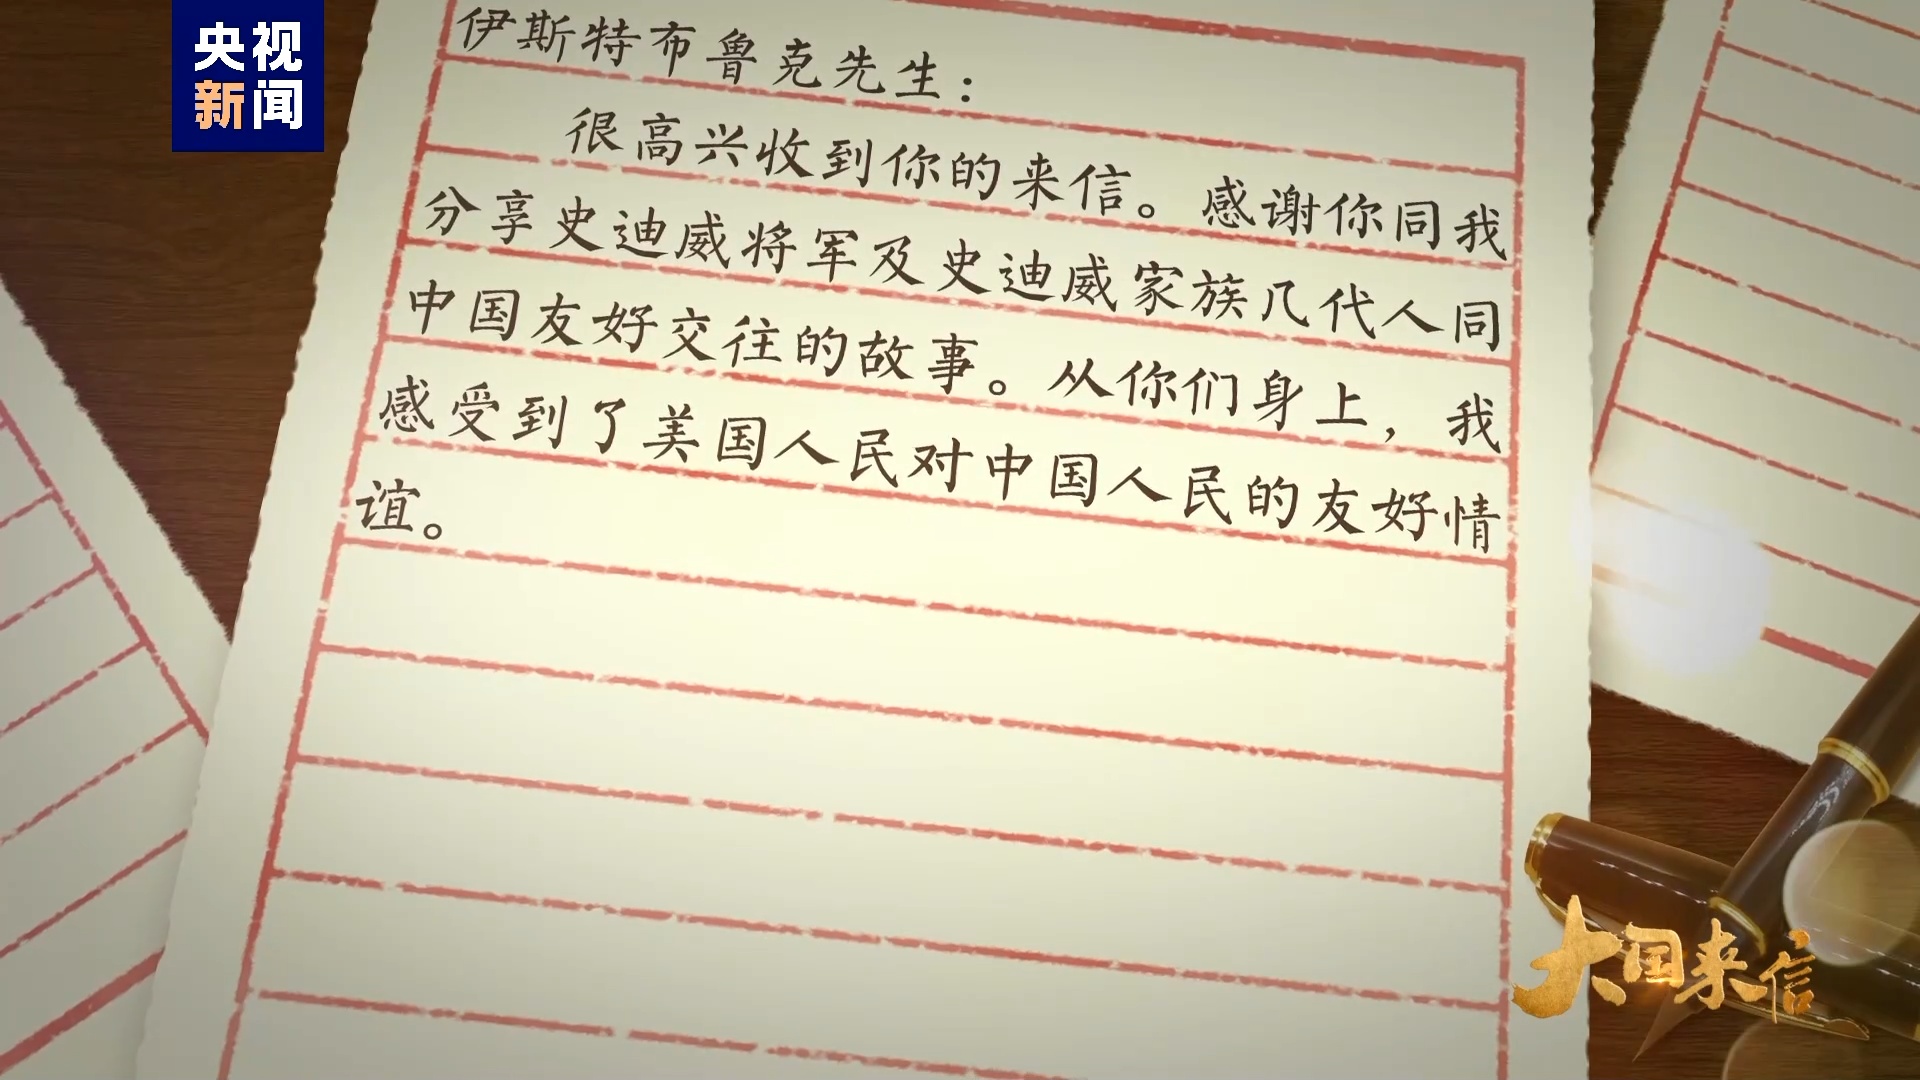 央视
新闻
伊斯特布鲁克先生：
很高兴收到你的来信。感谢你同我
分享史迪威将军及史迪威家族几代人同
中国友好交往的故事。从你们身上，我
感受到了美国人民对中国人民的友好情
谊。
大国来信